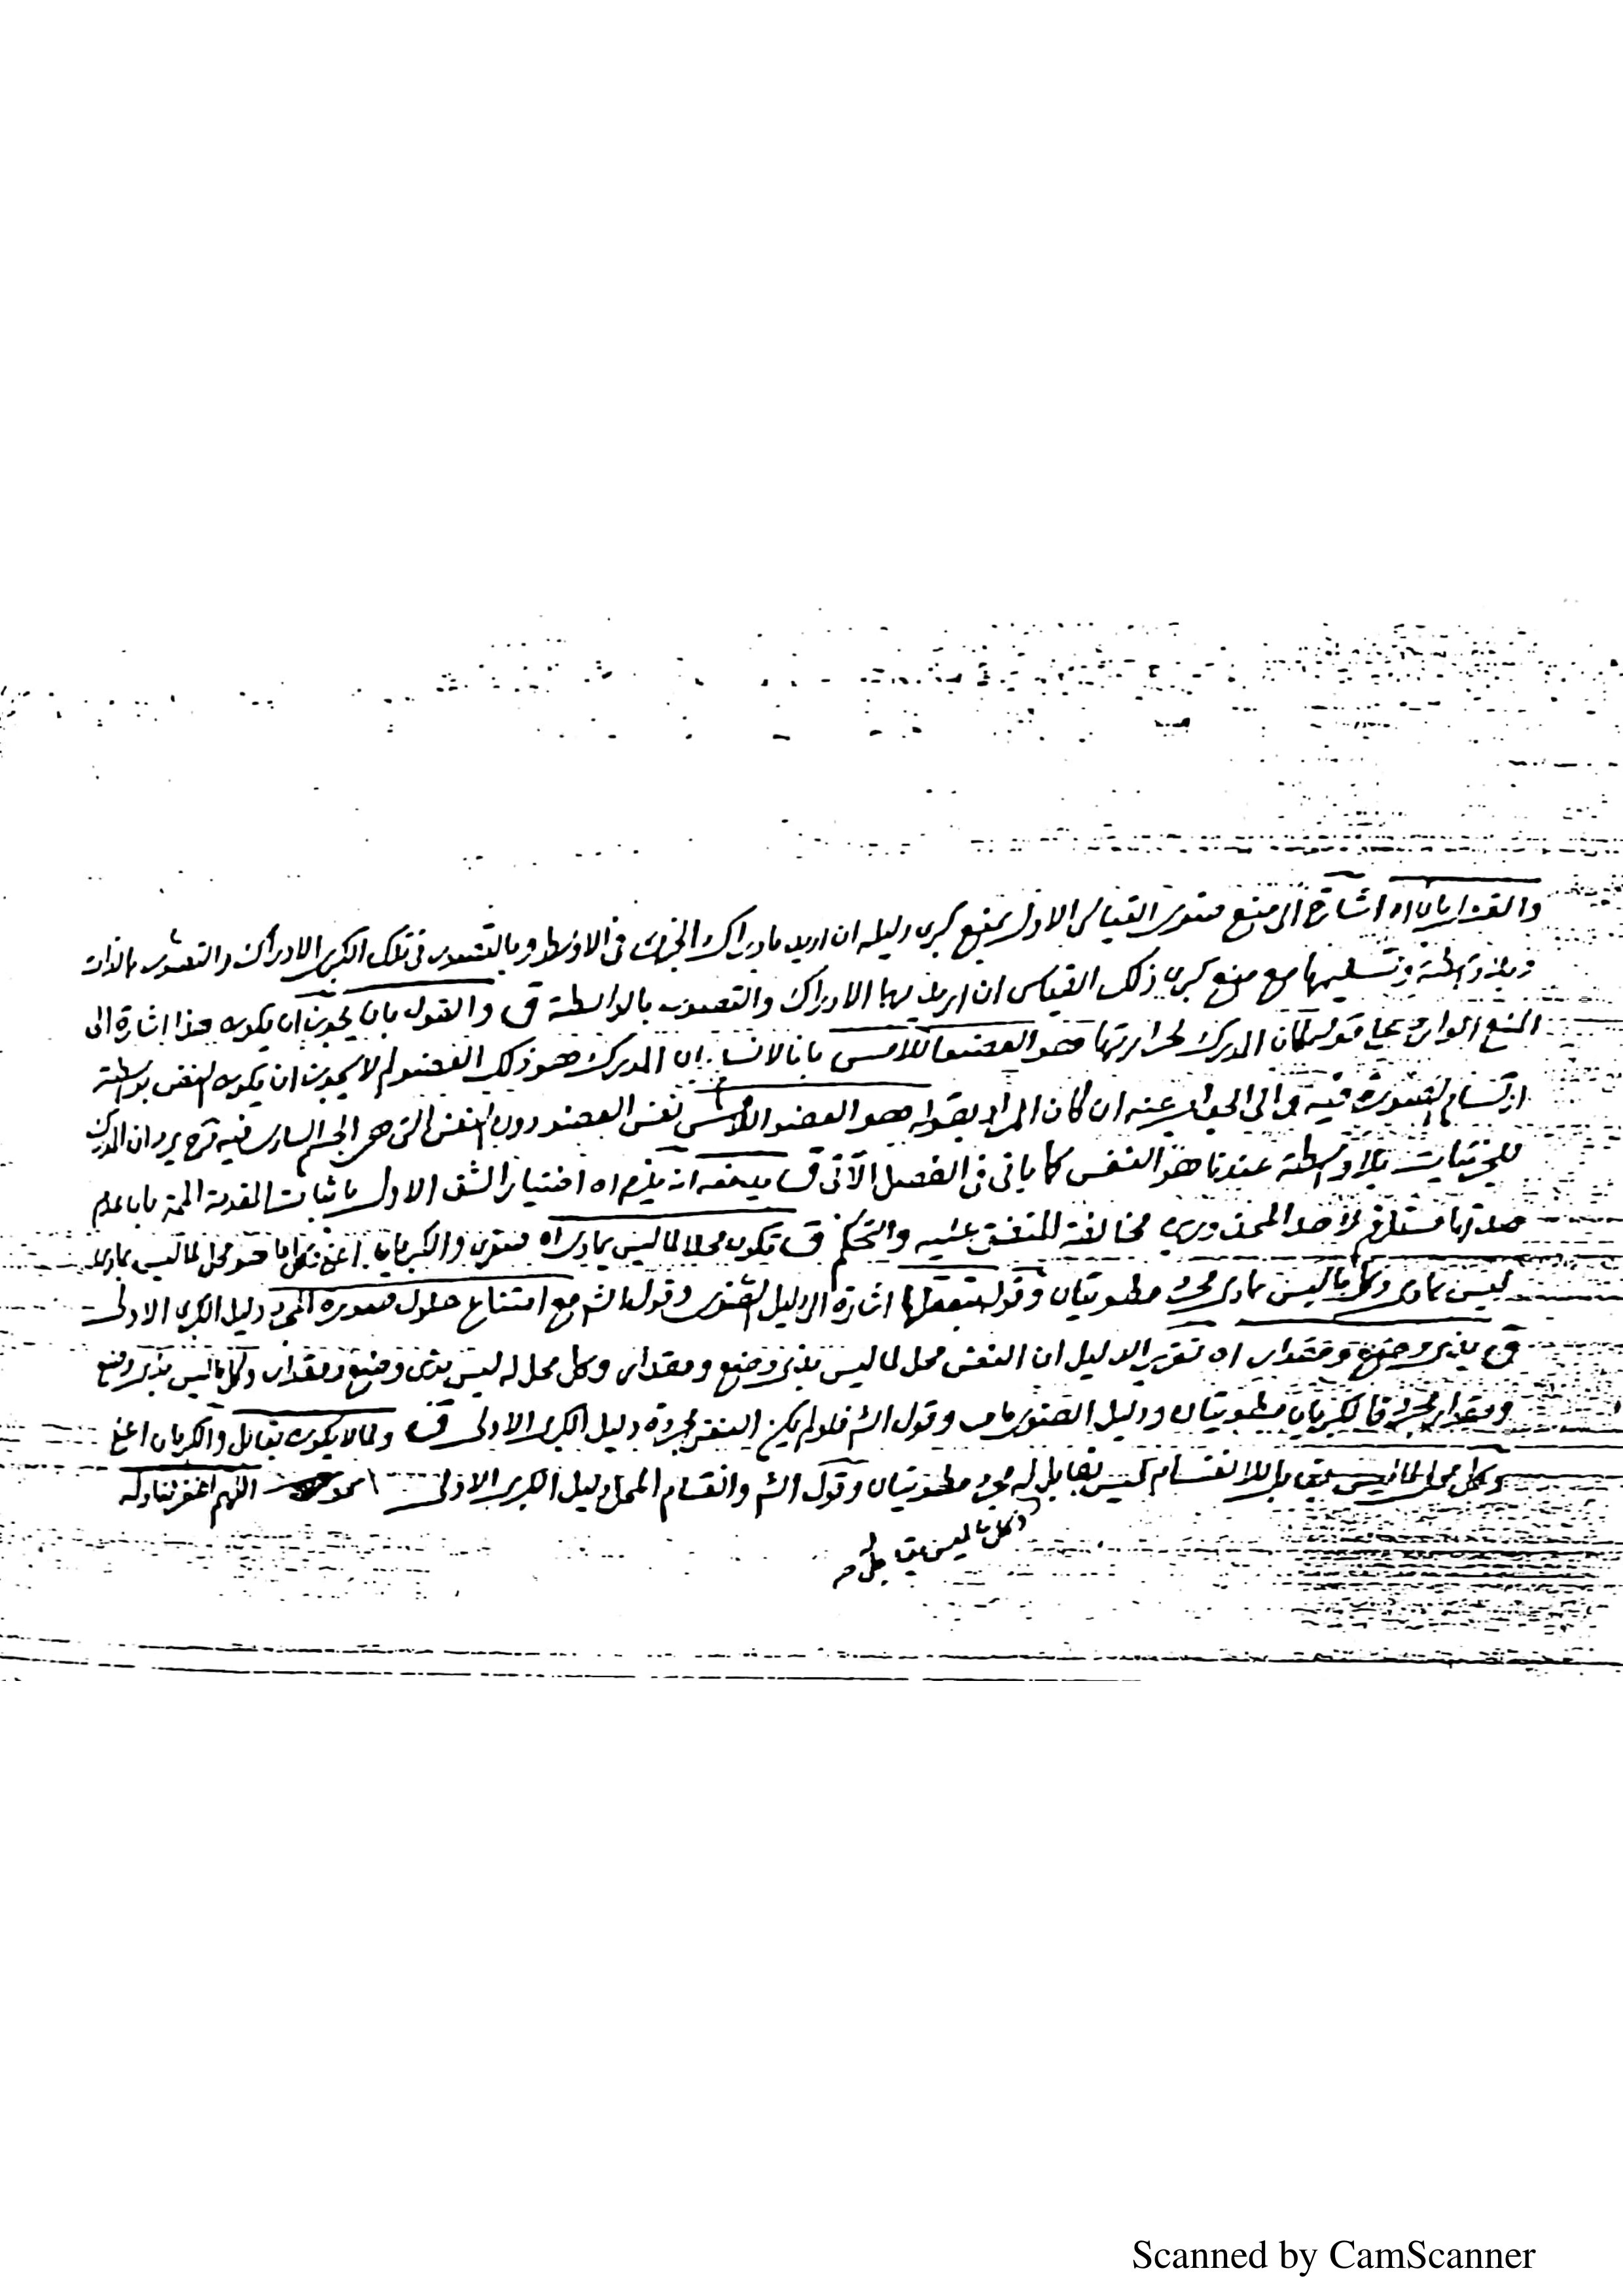 والقول بان اه اشارة الى منع صغرى القياس الاول بمنع كبرى دليله ان اريد بادراك الجزئيات فى الاوسط وبالتصور فى تلك الكبرى الادراك والتصور بالذات
وبلا واسطة وتسليمها مع منع كبرى ذلك القياس ان اريد بهما الادراك والتصور بالواسطة ق والقول بان يجوز ان يكون هذا اشارة الى
المنع الوارد على قوله لكان المدرك لحرارتها هو العضو اللامس بانا لانسلم ان المدرك هو ذلك العضو لم لا يجوز ان يكون النفس بواسطة
ارتسام الصورة فيه ق الى الجواب عنه ان كان المراد بقوله هو العضو اللامس نفس العضو دون النفس التى هى الجسم السارى فيه يرد ان المدرك
للجزئيات بلا واسطة عندنا هو النفس كما يأتى فى الفصل الآتى ق يدفعه انه يلزم اه اختيار الشق الاول باثبات المقدمة الممنوعة بان عدم
صدقها مستلزم لاحد المحذورين مخالفة المتفق عليه والتحكم ق تكون محلا لما ليس بمادى اه صغرى والكبريان اعنى وكل ما هو محل لما ليس بمادى
ليس بمادى وكل ما ليس بمادى مجرد مطويتان وقوله بتعقلها اشارة الى دليل الصغرى وقول الش مع امتناع حلول صورة المجرد دليل الكبرى الاولى
ق بذى وضع ومقدار اه تقرير الدليل ان النفس محل لما ليس بذى وضع ومقدار وكل محل له ليس بذى وضع ومقدار وكل ما ليس بذى وضع
ومقدار مجرد فالكبريان مطويتان ودليل الصغرى ما مر وقول الش فلو لم يكن النفس مجردة دليل الكبرى الاولى ق ولما لا يكون بقابل والكبريان اعنى
وكل محل لما ليس بقابل للانقسام ليس بقابل له مجرد مطويتان وقول الش وانقسام المحل دليل الكبرى الاولى اللهم اغفر لنا وله
وكل ما ليس بقابل له
Scanned by CamScanner